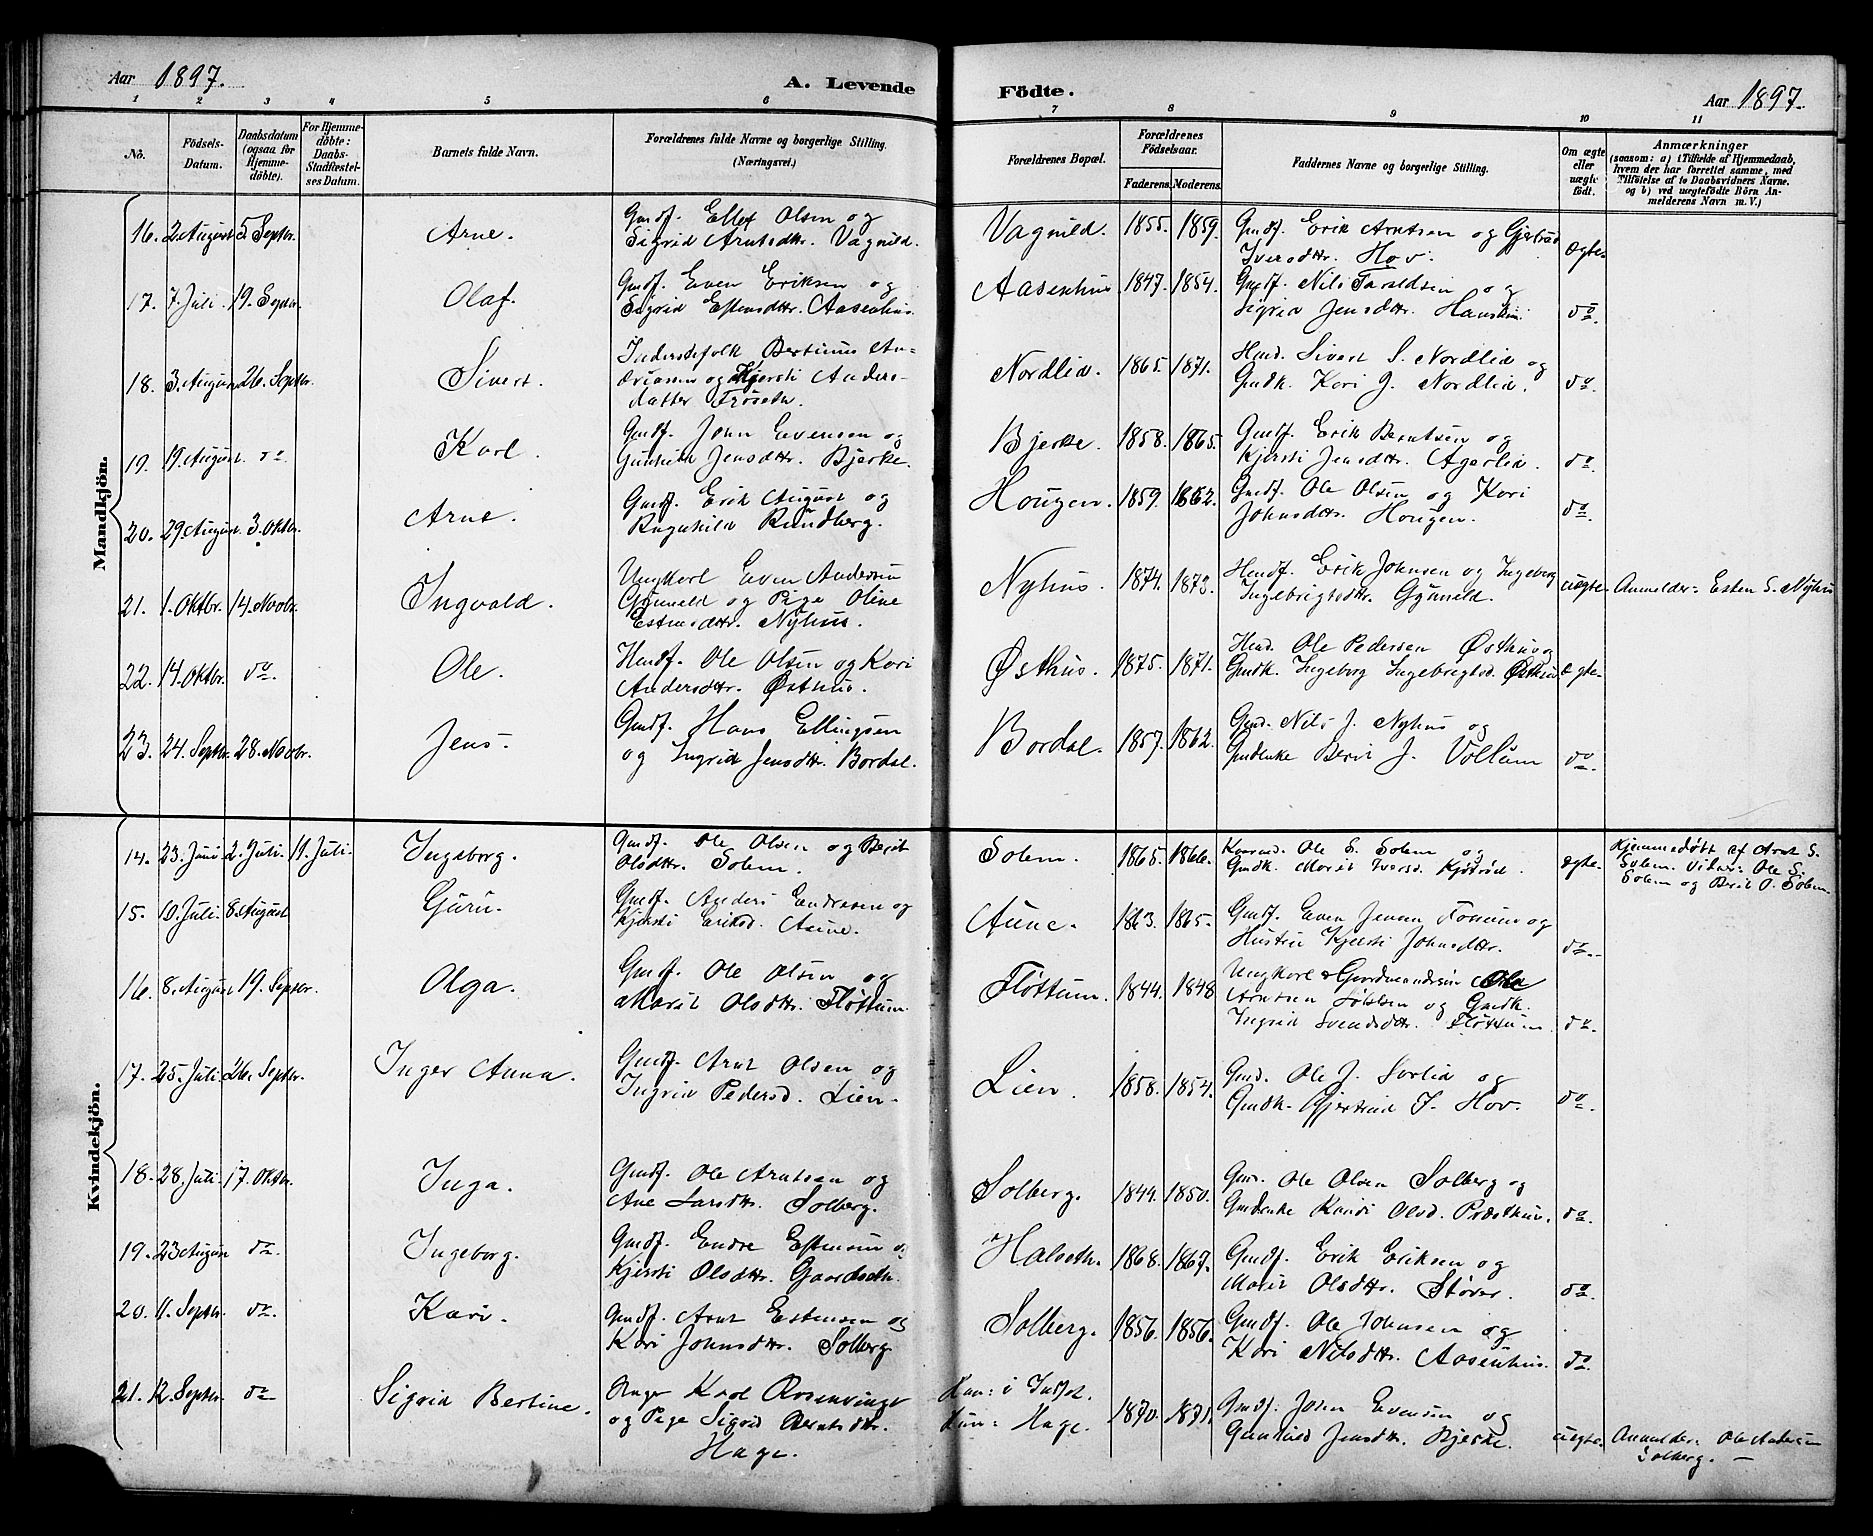 Aar 1897. A. Levende Födte. Aar 1897.
1 2 3 4 5 6 7 8 9 10 11
No. Födsels-Datum. Daabsdatum (ogsaa for Hjemme-döbte). For Hjemme-döbte: Daabs-Stadfæstel-ses Datum. Barnets fulde Navn. Forældrenes fulde Navne og borgerlige Stilling. (Næringsvei.) Forældrenes Bopæl. Forældrenes Födselsaar. Faderens. Moderens. Faddernes Navne og borgerlige Stilling. Om ægte eller uægte födt. Anmærkninger (saasom: a) i Tilfælde af Hjemmedaab, hvem der har forrettet samme, med Tilföielse af to Daabsvidners Navne. og b) ved uægtefödte Börn An-melderens Navn m. V.)
Mandkjön.
16. 2 August 5. Septbr. Arne. Gmdf. Ellef Olsen og
Sigrid Arntsdtr. Vagnild. Vagnild. 1855. 1859. Gmdf. Erik Arntsen og Gjertrud
Iversdtr. Hov. ægte
17. 7. Juli. 19. Septbr. Olaf. Gmdf. Even Eriksen og
Sigrid Estensdtr. Aasenhus. Aasenhus 1847. 1854. Gmdf. Nils Taraldsen og
Sigrid Jensdtr. do.
18. 3. August 26. Septbr. Sivert. Inderstfolk Bertinus An-
driasen og Kjersti Anders-
datter Frøseth. Nordlid. 1865. 1871. Sivert S. Nordlid og
Gmdk. Kari J. Nordlid. do.
19. 19. August. do. Karl. Gmdf. John Evensen og
Gunhild Jensdtr. Bjerke. Bjerke 1858. 1865. Gmdf. Erik Berntsen og
Kjersti Jensdtr. Agerlid. do.
20. 29. August. 3. Oktbr. Arnt. Gmdf. Erik August og
Ragnhild Rundberg. Hougen. 1859. 1862. Gmdf. Ole Olsen og Kari
Johnsdtr. Hougen. do.
21. 1. Oktbr. 14. Novbr. Ingvald. Ungkarl Even Andersen
Gynneld og Pige Oline
Estensdtr. Nyhus. Nyhus. 1874. 1873. Hmdf. Erik Johnsen og Ingeborg
Ingebrigtsdtr. Gynneld. uægte Anmelder: Esten S. Nyhus
22. 14. Oktbr. do. Ole. Hmdf. Ole Olsen og Kari
Andersdtr. Østhus. Østhus. 1875. 1871. Ole Pedersen Østhus og
Gmdk. Ingeborg Ingebrigtsd. Østhus ægte
23. 24. Septbr. 28. Novbr. Jens. Gmdf. Hans Ellingsen
og Ingrid Jensdtr. Bordal. Bordal. 1857. 1862. Gmd. Nils J. Nyhus og
Gmdenke Berit J. Vollum do.
Kvindekjön.
14. 23. Juni 2. Juli. 11. Juli. Ingeborg. Gmdf. Ole Olsen og Berit
Olsdtr. Solem. Solem. 1865. 1866. Ole S. Solem og
Gmdk. Marit Iversd. ægte Hjemmedøbt af Arnt S.
Solem. Vidner: Ole S.
Solem og Berit O. Solem.
15. 10. Juli. 8. August Guru. Gmdf. Anders Endresen og
Kjersti Eriksd. Aune. Aune. 1863. 1865. Gmdf. Even Jensen Fossum og
Hustru Kjersti Johnsdtr. do.
16. 8. August 19. Septbr. Olga. Gmdf. Ole Olsen og
Marit Olsdtr. Fløttum. Fløttum. 1844. 1848 Ungkarl Ole
Arntsen og Gmdk.
Ingrid Svendsdtr. Fløttum. do.
17. 25. Juli. 26. Septbr. Inger Anna. Gmdf. Arnt Olsen og
Ingrid Pedersd. Lien. Lien. 1858. 1854. Gmd. Ole J. Sorlid og
Gmdk. Gjertrud I. Hov. do.
18. 28. Juli. 17. Oktbr. Inga. Gmdf. Ole Arntsen og
Ane Larsdtr. Solberg. Solberg. 1844. 1850. Gmd. Ole Olsen Solberg og
Gmdenke Randi Olsd. Præsthus. do.
19. 23 August do. Ingeborg. Gmdf. Endre Estensen og
Kjersti Olsdtr. Gaardseth. Halseth. 1868. 1867. Gmdf. Erik Eriksen og
Marit Olsdtr. Støver. do.
20. 11. Septbr. do. Kari. Gmdf. Arnt Estensen og
Kari Johnsdtr. Solberg. Solberg. 1856. 1856. Gmdf. Ole Johnsen og
Kari Nilsdtr. Aasenhus. do.
21. 12. Septbr. do Sigrid Bertine. Karl Rosenvinge
og Pige Sigrid Berntsdtr.
Hage. Han: i Indset.
Hun: Hage. 1870. 1871. Gmdf. John Evensen og
Gunhild Jensdtr. Bjerke. uægte. Anmelder: Ole Andersen
Solberg.